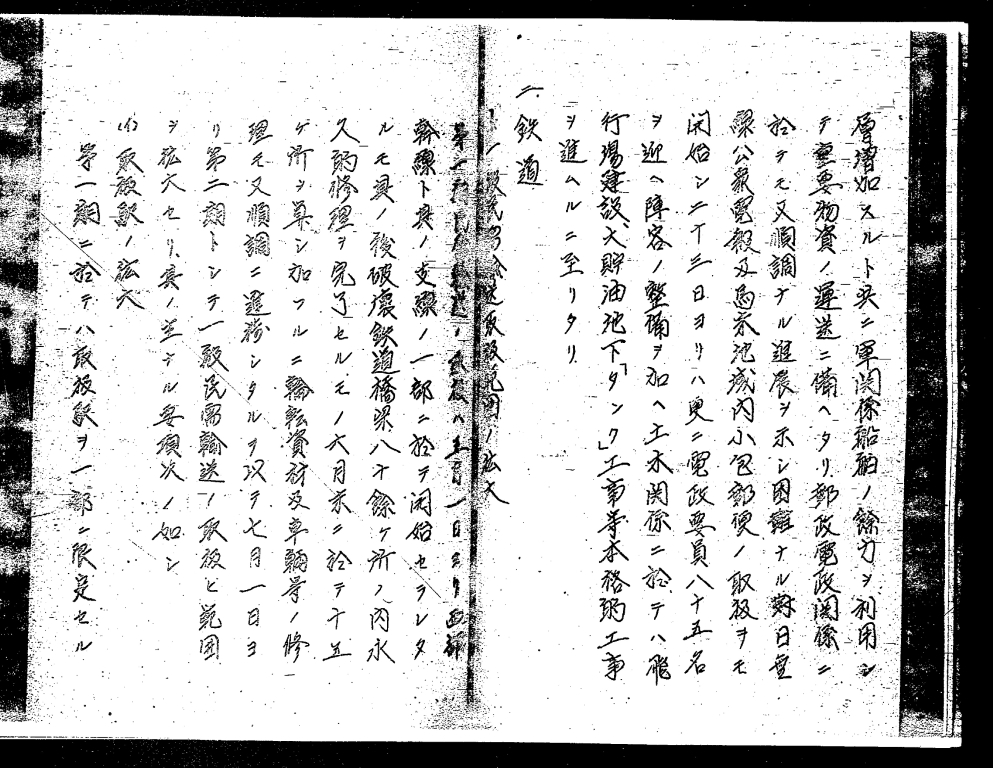 層増加スルト共ニ軍関係船舶ノ餘力ヲ利用シ
テ重要物資ノ運送ニ備ヘタリ郵政電政関係ニ
於テモ又順調ナル進展ヲ示シ困難ナル對日無
線公衆電報及馬来地域内小包郵便ノ取扱ヲモ
開始シ二十三日ヨリハ更ニ電政要員八十五名
ヲ迎ヘ陣容ノ整備ヲ加ヘ土木関係ニ於テハ飛
行場建設、大貯油池下「タンク」工事等本格的工事
ヲ進ムルニ至リタリ
二、鉄道
一般民需輸送取扱範囲ノ拡大
第一期民需輸送ノ取扱ハ五月一日ヨリ西部
幹線ト其ノ支線ノ一部ニ於テ開始セラレタ
ルモ其ノ後破壊鉄道橋梁八十餘ケ所ノ内永
久的修理ヲ完了セルモノ六月末ニ於テ十五
ケ所ヲ算シ加フルニ輪転資材及車輌等ノ修
理モ又順調ニ進捗シタルヲ以テ七月一日ヨ
リ第二期トシテ一般民需輸送ノ取扱ヒ範囲
ヲ拡大セリ、其ノ主ナル要項次ノ如シ
(イ)取扱駅ノ拡大
第一期ニ於テハ取扱駅ヲ一部ニ限定セル